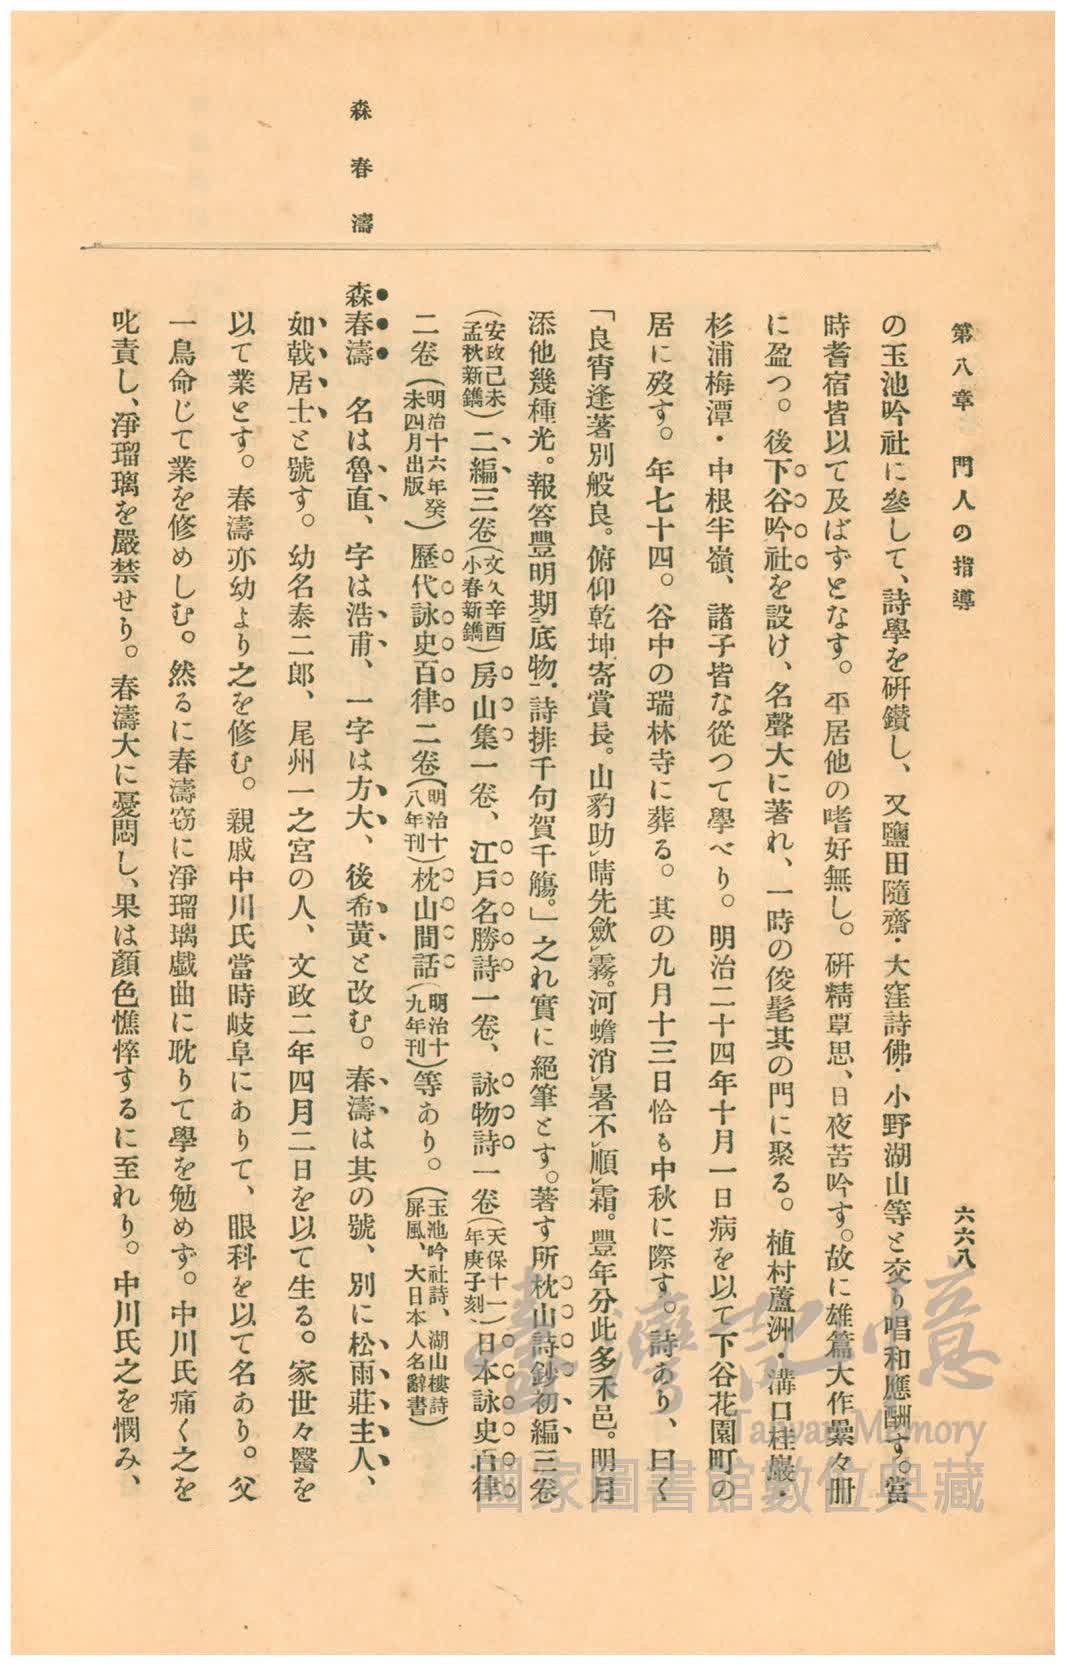 第八章 門人の指導 六六八
の玉池吟社に參して、詩學を硏鑽し、又鹽田隨齋・大窪詩佛・小野湖山等と交り唱和應酬す。當
時耆宿皆以て及ばずとなす。平居他の嗜好無し。硏精覃思、日夜苦吟す。故に雄篇大作纍々册
に盈つ。後下谷吟社を設け、名聲大に著れ、一時の俊髦其の門に聚る。植村蘆洲・溝口桂巖・
杉浦梅潭・中根半嶺、諸子皆な從つて學べり。明治二十四年十月一日病を以て下谷花園町の
居に歿す。年七十四。谷中の瑞林寺に葬る。其の九月十三日恰も中秋に際す。詩あり、曰く
「良宵逢著別般良。俯仰乾坤寄賞長。山豹助レ晴先歛レ霧。河蟾消レ暑不レ順レ霜。豐年分此多禾邑。明月
添他幾種光。報答豐明期二底物一。詩排千句賀千觴。」之れ實に絕筆とす。著す所枕山詩鈔初編三卷
(安政己未孟秋新鐫)二編三卷(文久辛酉小春新鐫)房山集一卷、江戶名勝詩一卷、詠物詩一卷(天保十一年庚子刻、)日本詠史百律
二卷(明治十六年癸未四月出版)歷代詠史百律二卷(明治十八年刊)枕山閒話(明治十九年刊)等あり。(玉池吟社詩、湖山樓詩屛風、大日本人名辭書)
森春濤
森春濤 名は魯直、字は浩甫、一字は方大、後希黃と改む。春濤は其の號、別に松雨莊主人、
如戟居士と號す。幼名泰二郎、尾州一之宮の人、文政二年四月二日を以て生る。家世々醫を
以て業とす。春濤亦幼より之を修む。親戚中川氏當時岐阜にありて、眼科を以て名あり。父
一鳥命じて業を修めしむ。然るに春濤窃に淨瑠璃戲曲に耽りて學を勉めず。中川氏痛く之を
叱責し、淨瑠璃を嚴禁せり。春濤大に憂悶し、果は顏色憔悴するに至れり。中川氏之を憫み、
臺灣記憶
Taiwan Memory
國家圖書館數位典藏